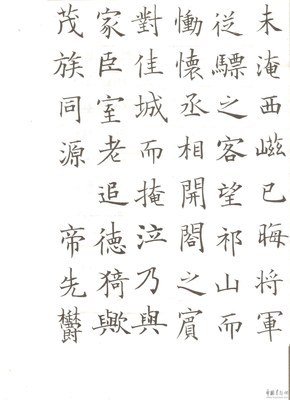 未淹西巘已晦将軍
從驃之客望祁山而
慟懷丞相開閤之賓
對佳城而掩泣乃與
家臣室老追德猗歟
茂族同源帝先欝